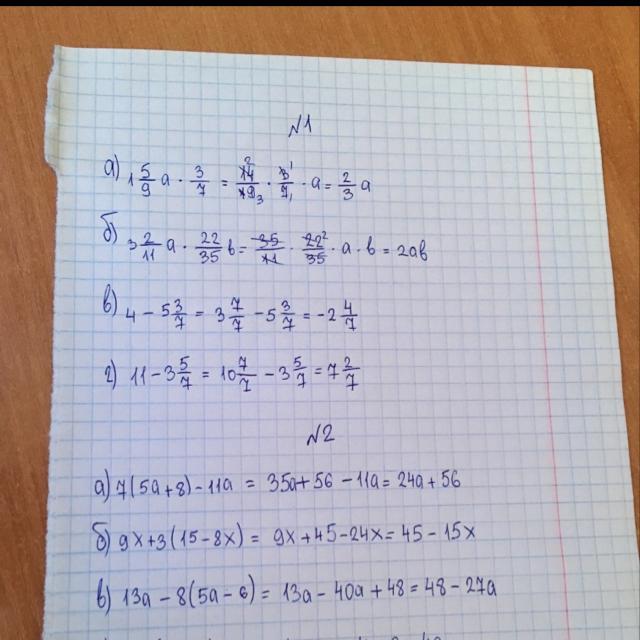 №1
а) 1 5/9 a · 3/7 = 14²/9₃ · 3¹/7₁ · a = 2/3 a
б) 3 2/11 a · 22/35 b = 35/11 · 22²/35 · a · b = 2ab
в) 4 - 5 3/7 = 3 7/7 - 5 3/7 = -2 4/7
г) 11 - 3 5/7 = 10 7/7 - 3 5/7 = 7 2/7
№2
а) 7(5a+8) - 11a = 35a + 56 - 11a = 24a + 56
б) 9x + 3(15 - 8x) = 9x + 45 - 24x = 45 - 15x
в) 13a - 8(5a - 6) = 13a - 40a + 48 = 48 - 27a